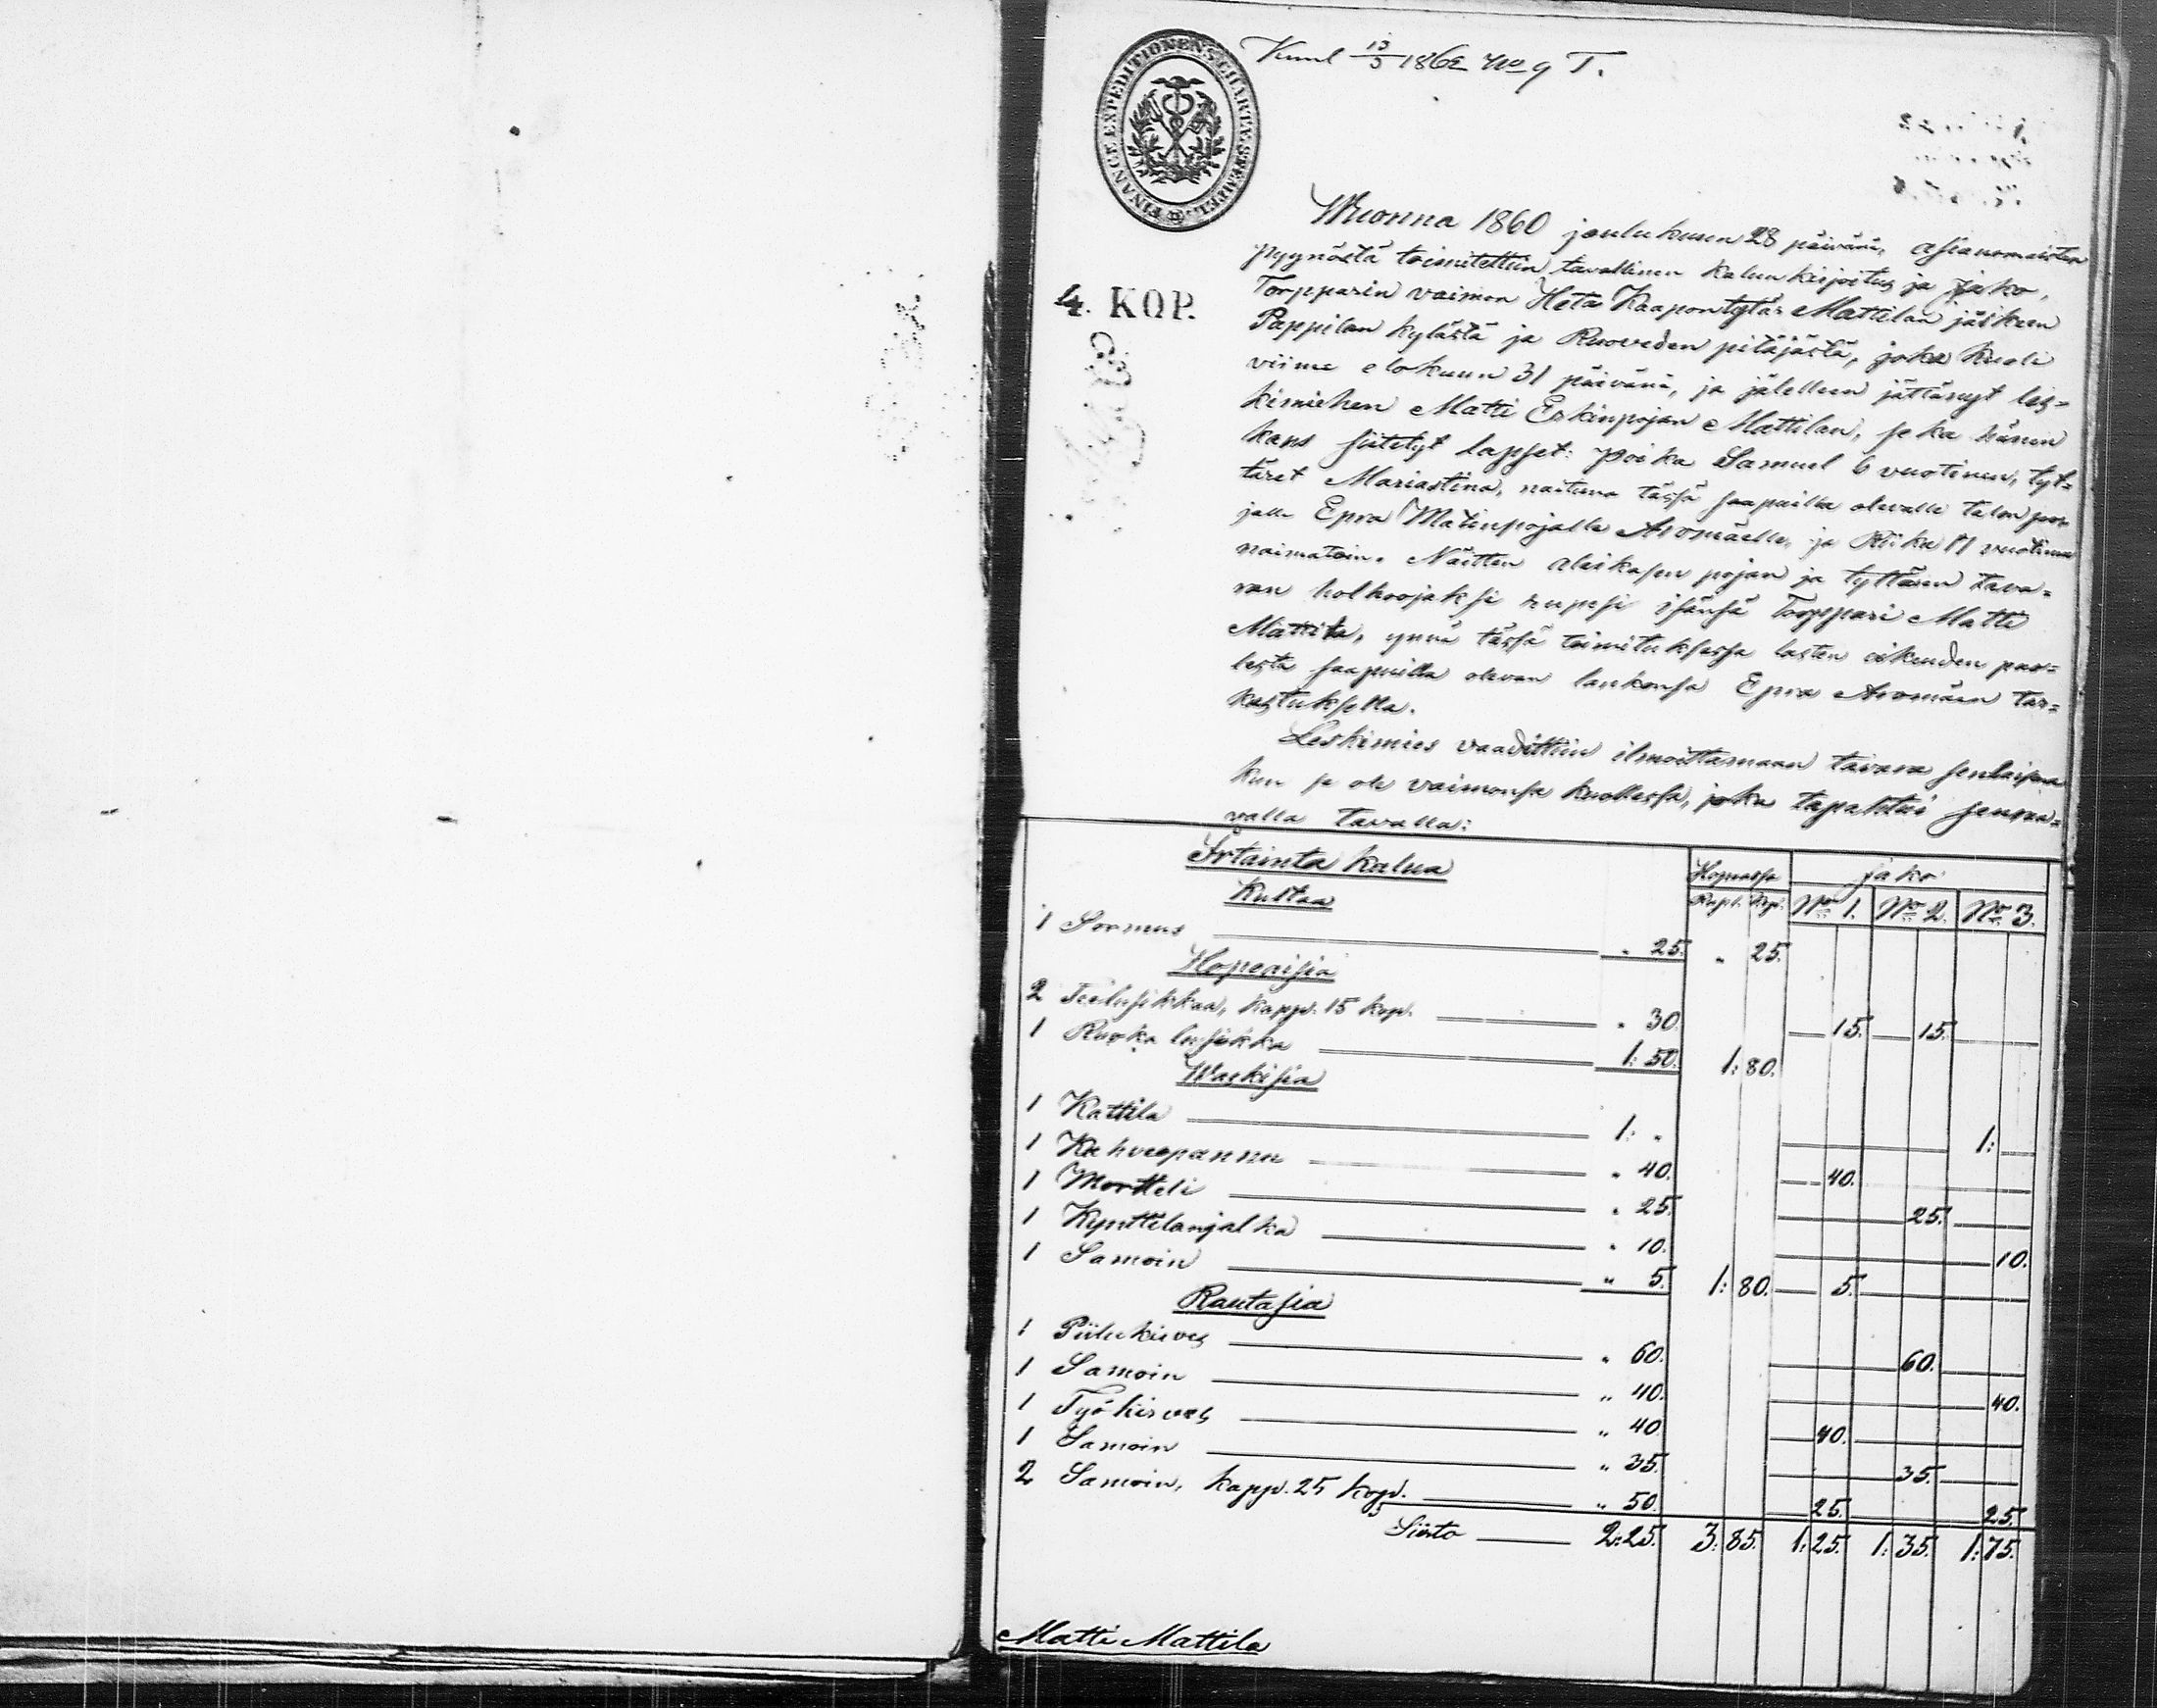 Kuul 13/3 1862 No 9 T.
FINANCE EXPEDITIONENS CHARTÆ STEMPEL
4. KOP.
Wuonna 1860 joulukuun 28 päivänä, asianomaisten
pyynöstä toimitettiin tavallinen kalunkirjoitus ja jako,
Torpparin vaimon Heta Kaapontytär Mattilan jälkeen
Pappilan kylästä ja Ruoveden pitäjästä, joka kuoli
viime elokuun 31 päivänä, ja jälelleen jättänyt les=
kimiehen Matti Erkinpojan Mattilan, se ka hänen
kans siitetyt lapset: poika Samuel 6 vuotinen, tyt=
täret Mariastina, naituna tässä saapuilla olevalle talon poi
jalle Epra Matinpojalle Aromäelle, ja Riika 11 vuotinen
naimatoin. Näitten alaikasen pojan ja tyttären tava=
ran holhoojaksi rupesi isänsä Torppari Matti
Mattila, ynnä tässä toimituksessa lasten oikeuden puo=
lesta saapuilla olevan lankonsa Epra Aromäen tar=
kastuksella.
Leskimies vaadittiin ilmoittamaan tavara senlaisena
kun se oli vaimonsa kuollessa, joka tapahtui seuraa=
valla tavalla:
Irtainta kalua Hopeassa jako
Kultaa Rupl. Kop. No 1. No 2. No 3.
1 Sormus " 25. " 25.
Hopeaisia
2 Teelusikkaa, kapp. 15 kop. " 30. 15. 15.
1 Ruoka lusikka 1: 50. 1: 80.
Waskisia
1 Kattila 1: " 1:
1 Kahveepannu " 40. 40.
1 Mortteli " 25. 25.
1 Kynttilanjalka " 10. 10.
1 Samoin " 5. 1: 80. 5.
Rautasia
1 Piilukirves " 60. 60.
1 Samoin " 40. 40.
1 Työkirves " 40 40.
1 Samoin " 35. 35.
2 Samoin, kapp. 25 kop. " 50. 25. 25.
Siirto 2: 25. 3: 85. 1: 25. 1: 35. 1: 75.
Matti Mattila